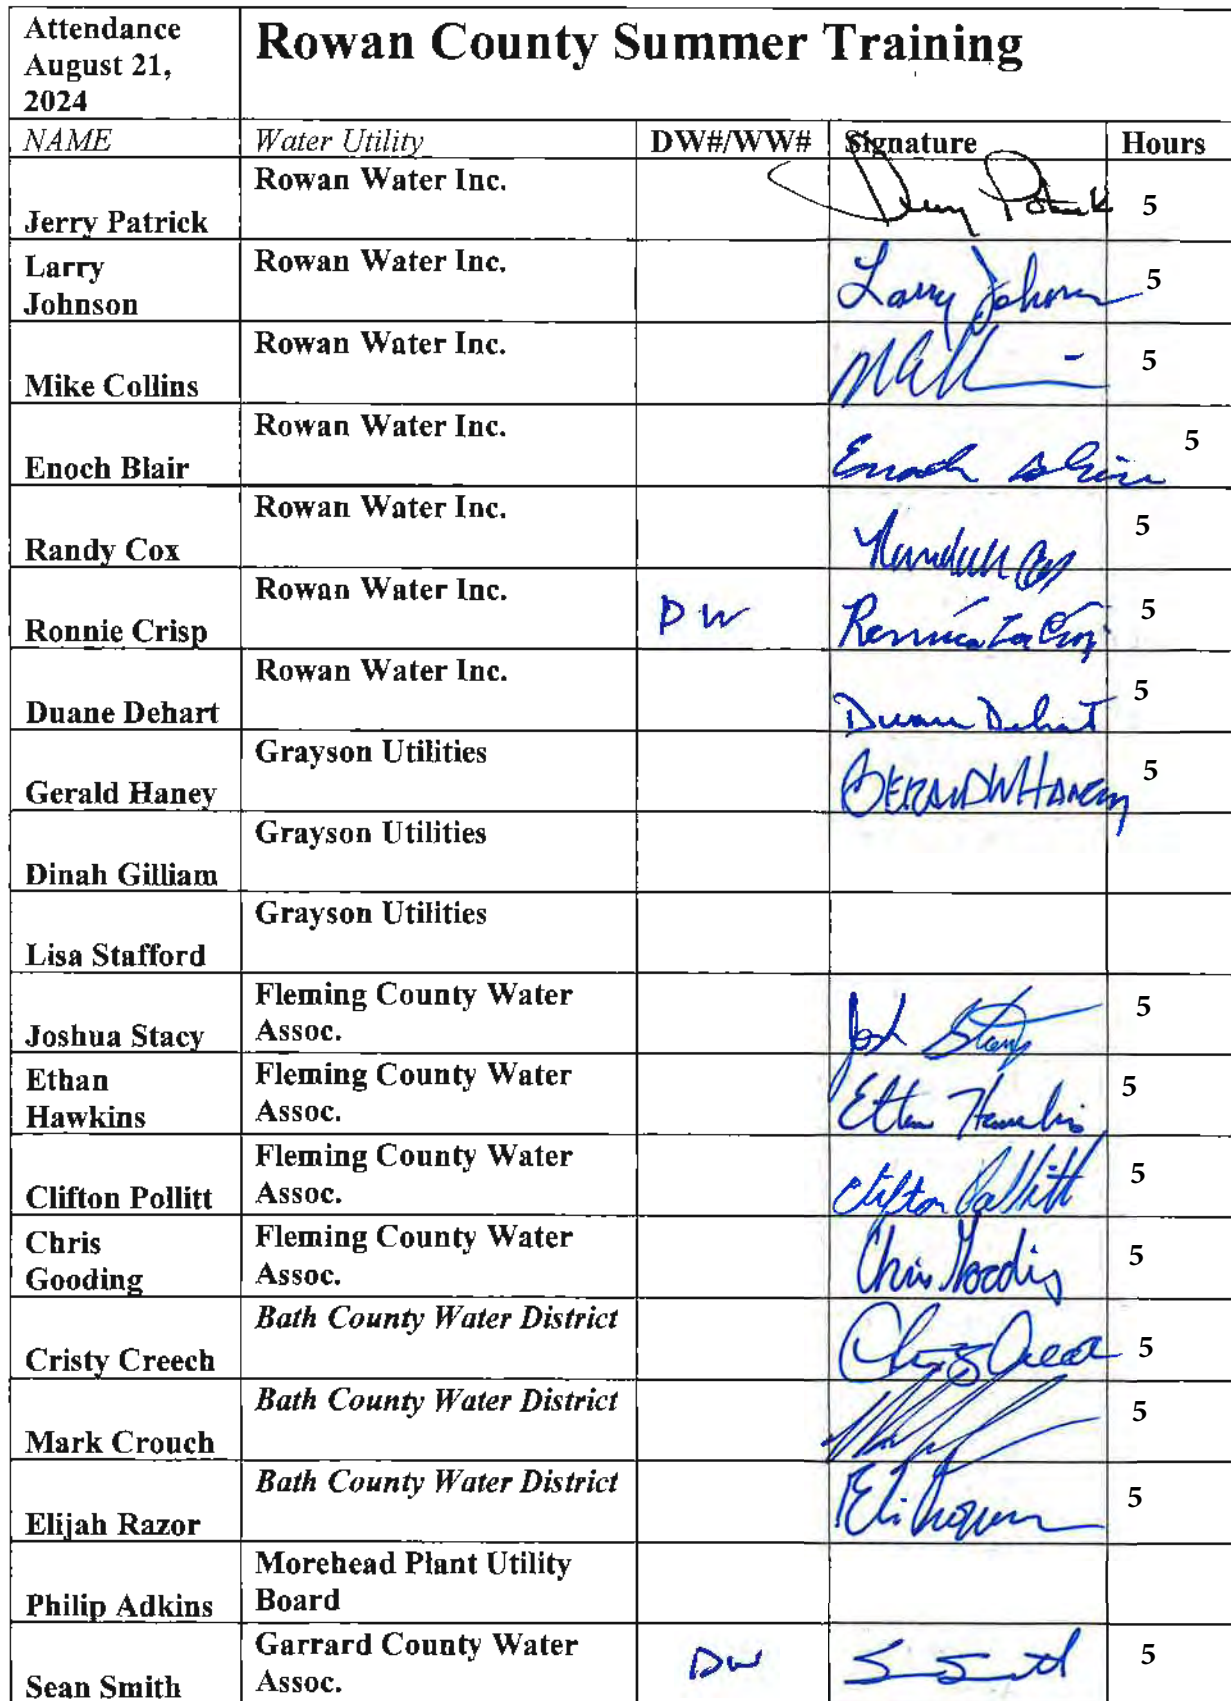 Attendance
August 21,
2024
Rowan County Summer Training
NAME Water Utility DW#/WW# Signature Hours
Jerry Patrick Rowan Water Inc. Jerry Patrick 5
Larry
Johnson Rowan Water Inc. Larry Johnson 5
Mike Collins Rowan Water Inc. 5
Enoch Blair Rowan Water Inc. Enoch Blair 5
Randy Cox Rowan Water Inc. Randall Cox 5
Ronnie Crisp Rowan Water Inc. DW Ronnie Lee Crisp 5
Duane Dehart Rowan Water Inc. Duane Dehart 5
Gerald Haney Grayson Utilities GERALD W HANEY 5
Dinah Gilliam Grayson Utilities
Lisa Stafford Grayson Utilities
Joshua Stacy Fleming County Water
Assoc. Josh Stacy 5
Ethan
Hawkins Fleming County Water
Assoc. Ethan Hawkins 5
Clifton Pollitt Fleming County Water
Assoc. Clifton Pollitt 5
Chris
Gooding Fleming County Water
Assoc. Chris Gooding 5
Cristy Creech Bath County Water District Cristy Creech 5
Mark Crouch Bath County Water District 5
Elijah Razor Bath County Water District 5
Philip Adkins Morehead Plant Utility
Board
Sean Smith Garrard County Water
Assoc. DW S Smith 5